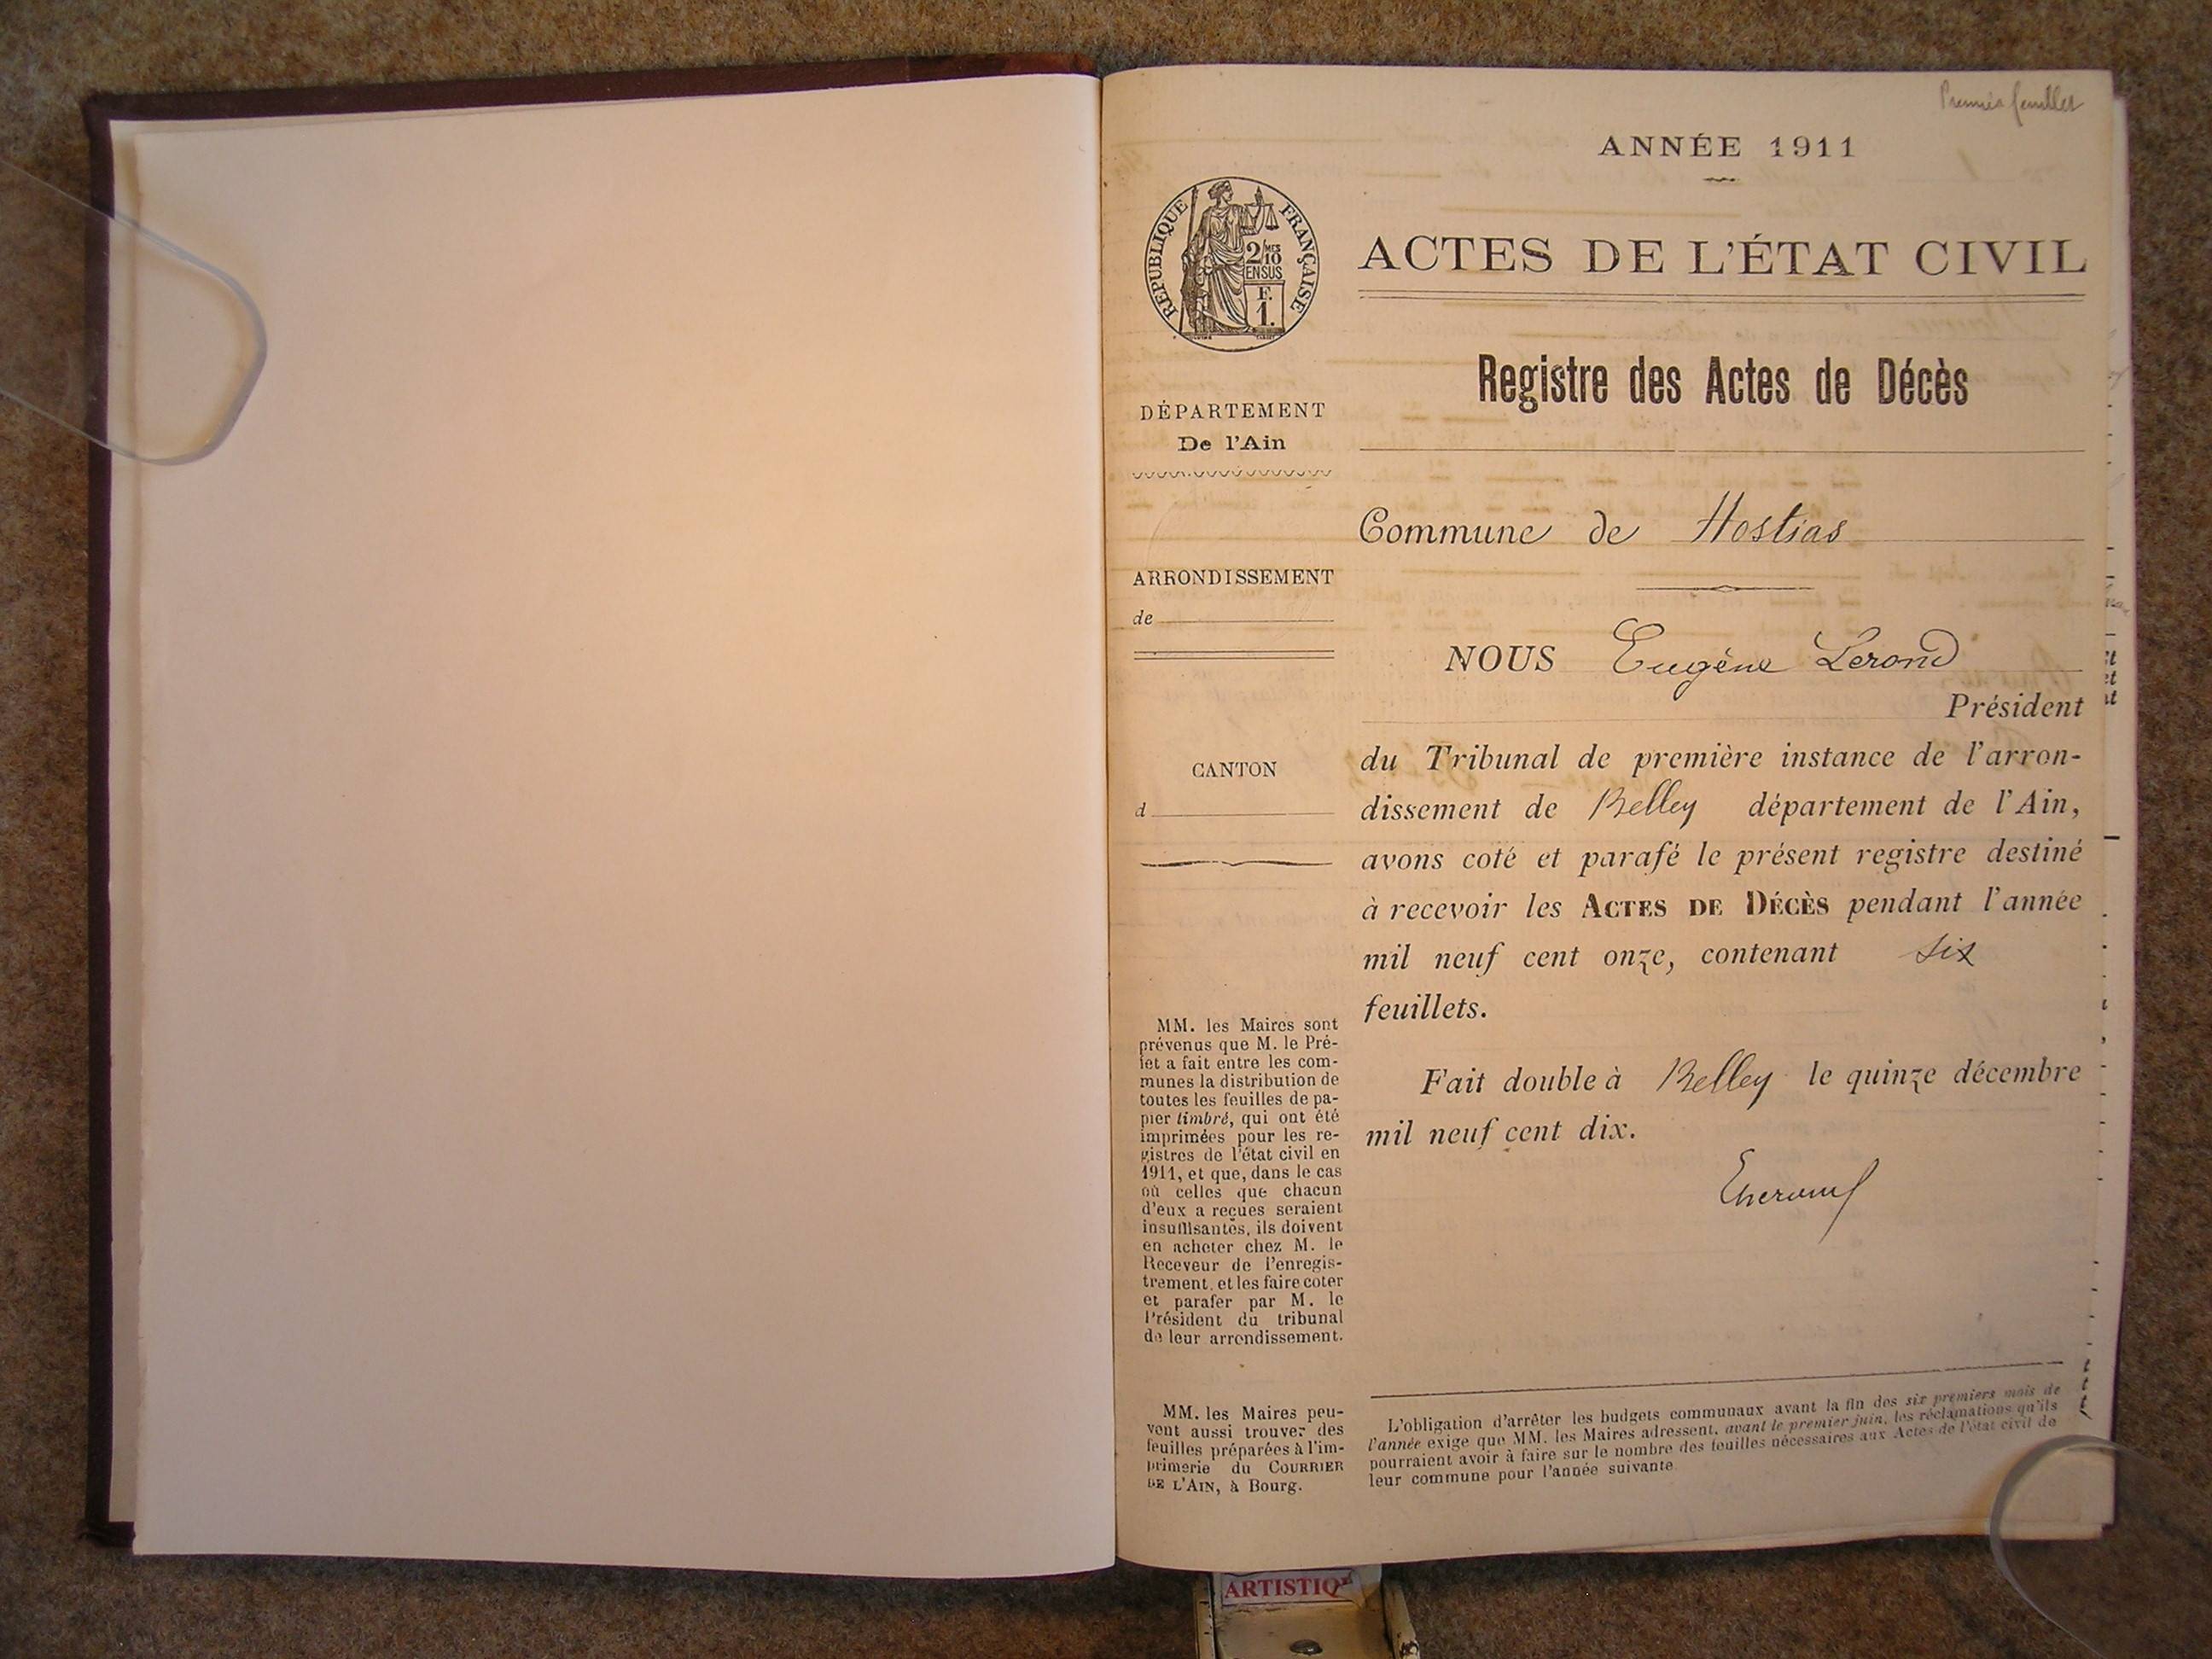 Premier feuillet
ANNÉE 1911
RÉPUBLIQUE FRANÇAISE
2/10 MES
EN SUS
F.
1.
ACTES DE L'ÉTAT CIVIL
Registre des Actes de Décès
DÉPARTEMENT
De l'Ain
Commune de Hostias
ARRONDISSEMENT
de
NOUS Eugène Lerond
Président
du Tribunal de première instance de l'arron-
dissement de Belley département de l'Ain,
avons coté et parafé le présent registre destiné
à recevoir les ACTES DE DÉCÈS pendant l'année
mil neuf cent onze, contenant six
feuillets.
Fait double à Belley le quinze décembre
mil neuf cent dix.
CANTON
d
MM. les Maires sont
prévenus que M. le Pré-
fet a fait entre les com-
munes la distribution de
toutes les feuilles de pa-
pier timbré, qui ont été
imprimées pour les re-
gistres de l'état civil en
1911, et que, dans le cas
où celles que chacun
d'eux a reçues seraient
insuffisantes, ils doivent
en acheter chez M. le
Receveur de l'enregis-
trement, et les faire coter
et parafer par M. le
Président du tribunal
de leur arrondissement.
MM. les Maires peu-
vent aussi trouver des
feuilles préparées à l'im-
primerie du COURRIER
DE L'AIN, à Bourg.
L'obligation d'arrêter les budgets communaux avant la fin des six premiers mois de
l'année exige que MM. les Maires adressent, avant le premier juin, les réclamations qu'ils
pourraient avoir à faire sur le nombre des feuilles nécessaires aux Actes de l'état civil de
leur commune pour l'année suivante.
ARTISTIQ